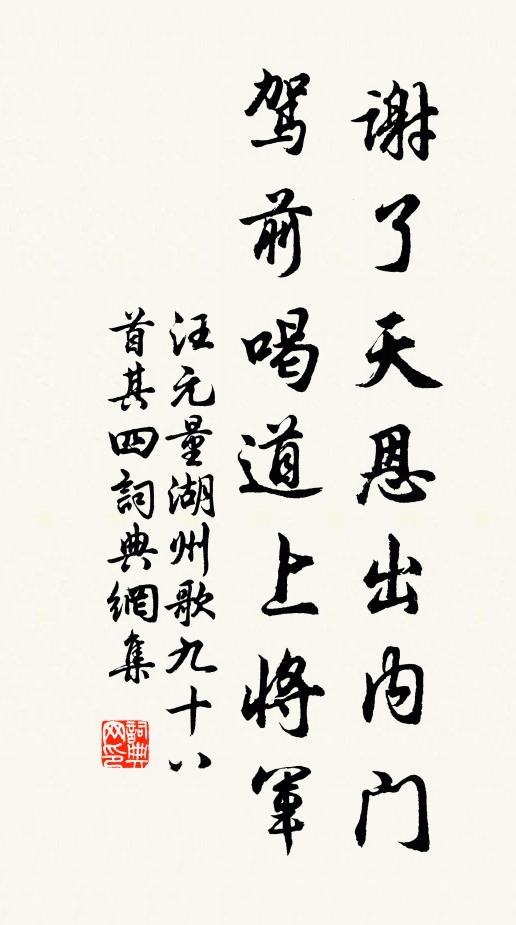 谢了天恩出内门
驾前喝道上将军
汪元量湖州歌九十八
首其四詞典網集
詞典
网印